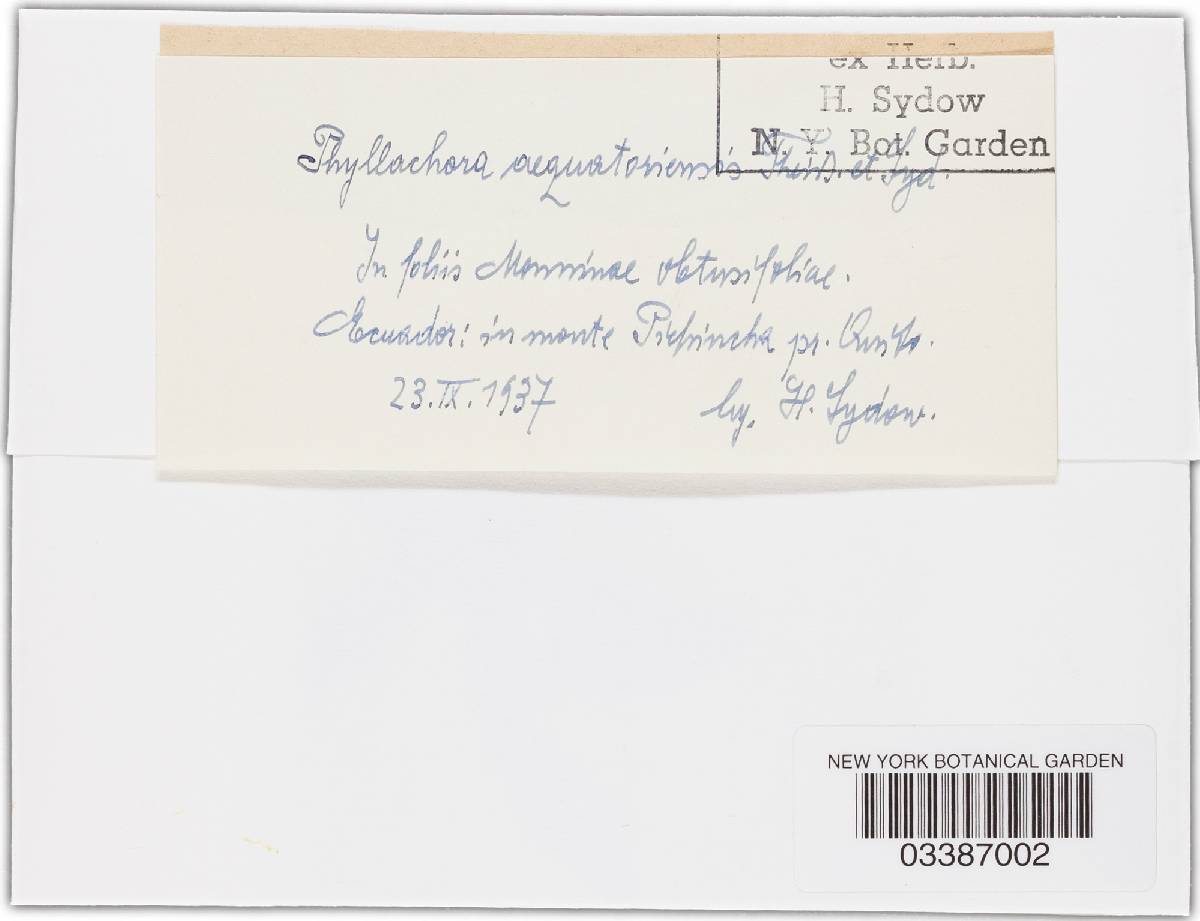 ex Herb.
H. Sydow
N. Y. Bot. Garden
Phyllachora aequatoriensis Theiss. et Syd.
In foliis Monninae obtusifoliae.
Ecuador: in monte Pichincha pr. Quito.
23.IX.1937 leg. H. Sydow.
NEW YORK BOTANICAL GARDEN
03387002